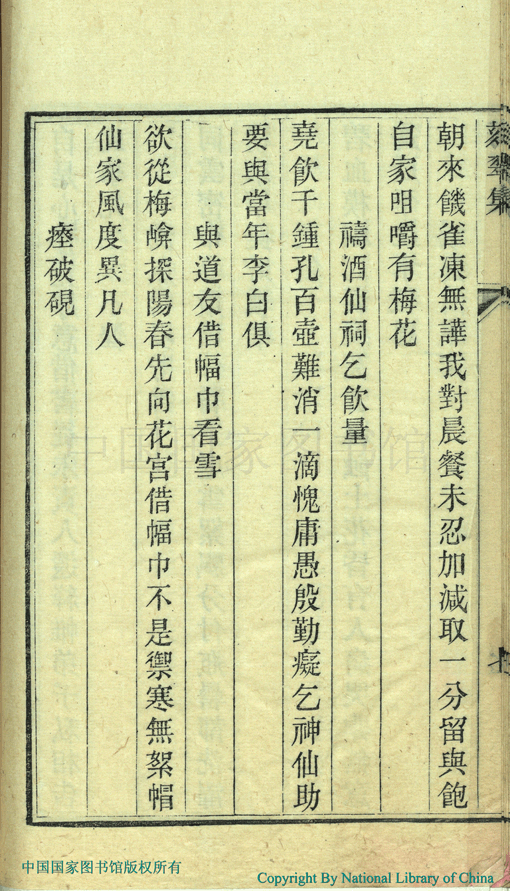 朝來饑雀凍無譁我對晨餐未忍加減取一分留與飽
自家咀嚼有梅花
禱酒仙祠乞飲量
堯飲千鍾孔百壺難消一滴愧庸愚殷勤癡乞神仙助
要與當年李白俱
與道友借幅巾看雪
欲從梅㟁探陽春先向花宮借幅巾不是禦寒無絮帽
仙家風度異凡人
瘞破硯
中国国家图书馆
中国国家图书馆版权所有
Copyright By National Library of China